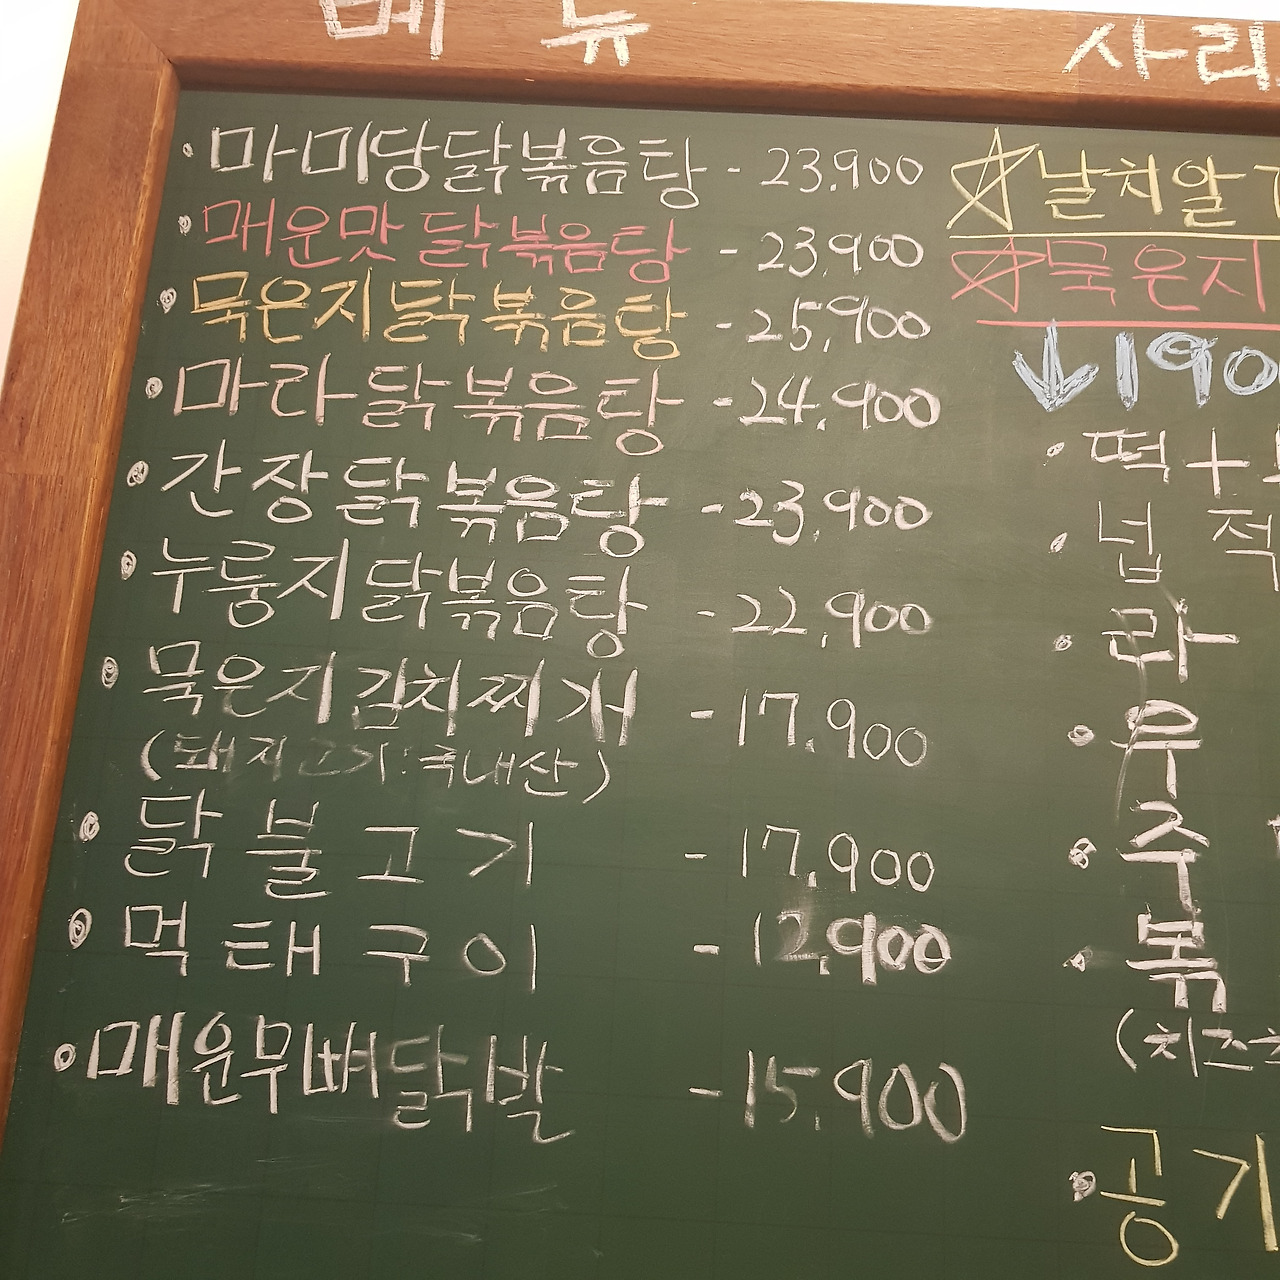 메뉴
마미당닭볶음탕 - 23.900
매운맛닭볶음탕 - 23,900
묵은지닭볶음탕 - 25,900
마라닭볶음탕 - 24,900
간장닭볶음탕 - 23,900
누룽지닭볶음탕 - 22,900
묵은지김치찌개 - 17.900
(돼지고기:국내산)
닭불고기 - 17,900
먹태구이 - 12,900
매운무뼈닭발 - 15,900
사리
☆날치알
☆묵은지
↓190
떡+
넙적
라
우
주
볶
(치즈
공기